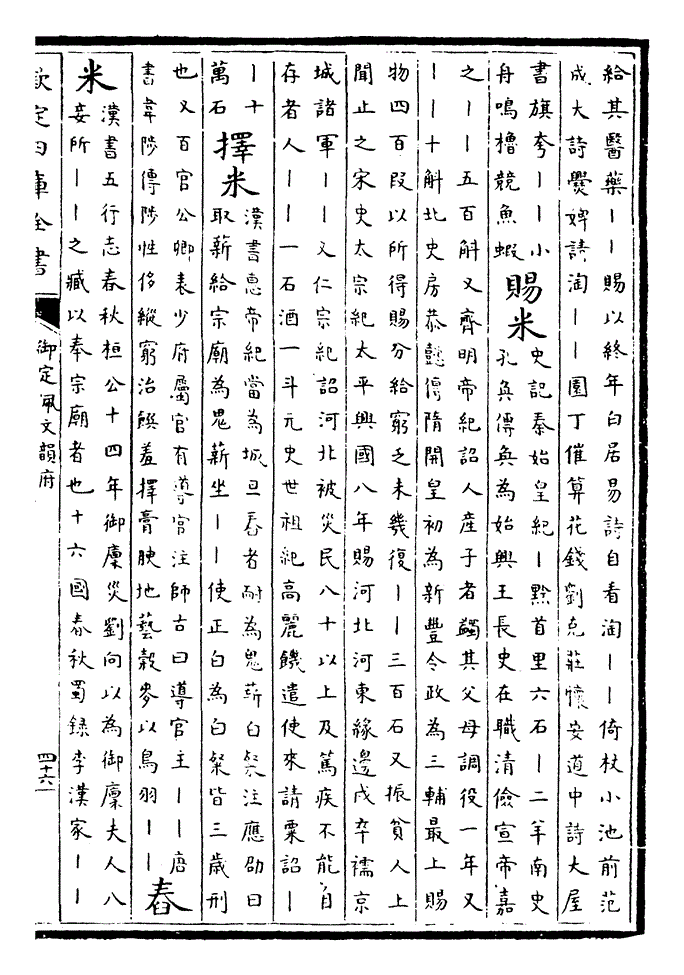 給其醫藥｜｜賜以終年白居易詩自看淘｜｜倚杖小池前范
成大詩爨婢請淘｜｜園丁催算花錢劉克莊懷安道中詩大屋
書旗夸｜｜小舟鳴櫓競魚蝦
賜米
史記秦始皇紀｜黔首里六石｜二羊南史
孔奐傳奐為始興王長史在職清儉宣帝嘉
之｜｜五百斛又齊明帝紀詔人産子者蠲其父母調役一年又
｜｜十斛北史房恭懿傳隋開皇初為新豐令政為三輔最上賜
物四百段以所得賜分給窮乏未幾復｜｜三百石又振貧人上
聞止之宋史太宗紀太平興國八年賜河北河東緣邊戍卒襦京
城諸軍｜｜又仁宗紀詔河北被災民八十以上及篤疾不能自
存者人｜｜一石酒一斗元史世祖紀高麗饑遣使來請粟詔｜
｜十萬石
擇米
漢書惠帝紀當為城旦舂者耐為鬼薪白粲注應劭曰
取薪給宗廟為鬼薪坐｜｜使正白為白粲皆三歲刑
也又百官公卿表少府屬官有導官注師古曰導官主｜｜唐
書韋陟傳陟性侈縱窮治饌羞擇膏腴地藝穀麥以鳥羽｜｜
舂米
漢書五行志春秋桓公十四年御廩災劉向以為御廩夫人八
妾所｜｜之臧以奉宗廟者也十六國春秋蜀録李漢家｜｜
欽定四庫全書
御定佩文韻府
四十六